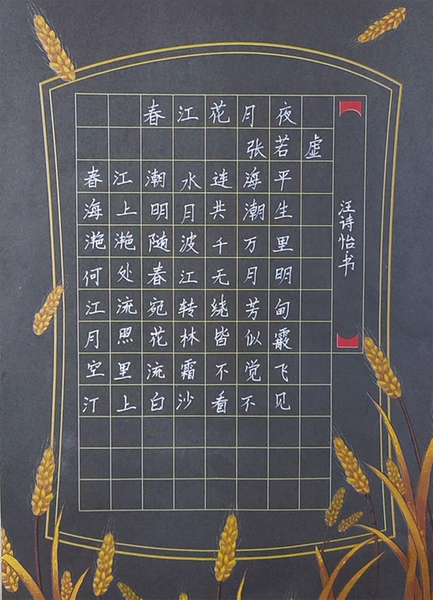 春江花月夜
张若虚
春江潮水连海平
海上明月共潮生
滟滟随波千万里
何处春江无月明
江流宛转绕芳甸
月照花林皆似霰
空里流霜不觉飞
汀上白沙看不见
汪诗怡书